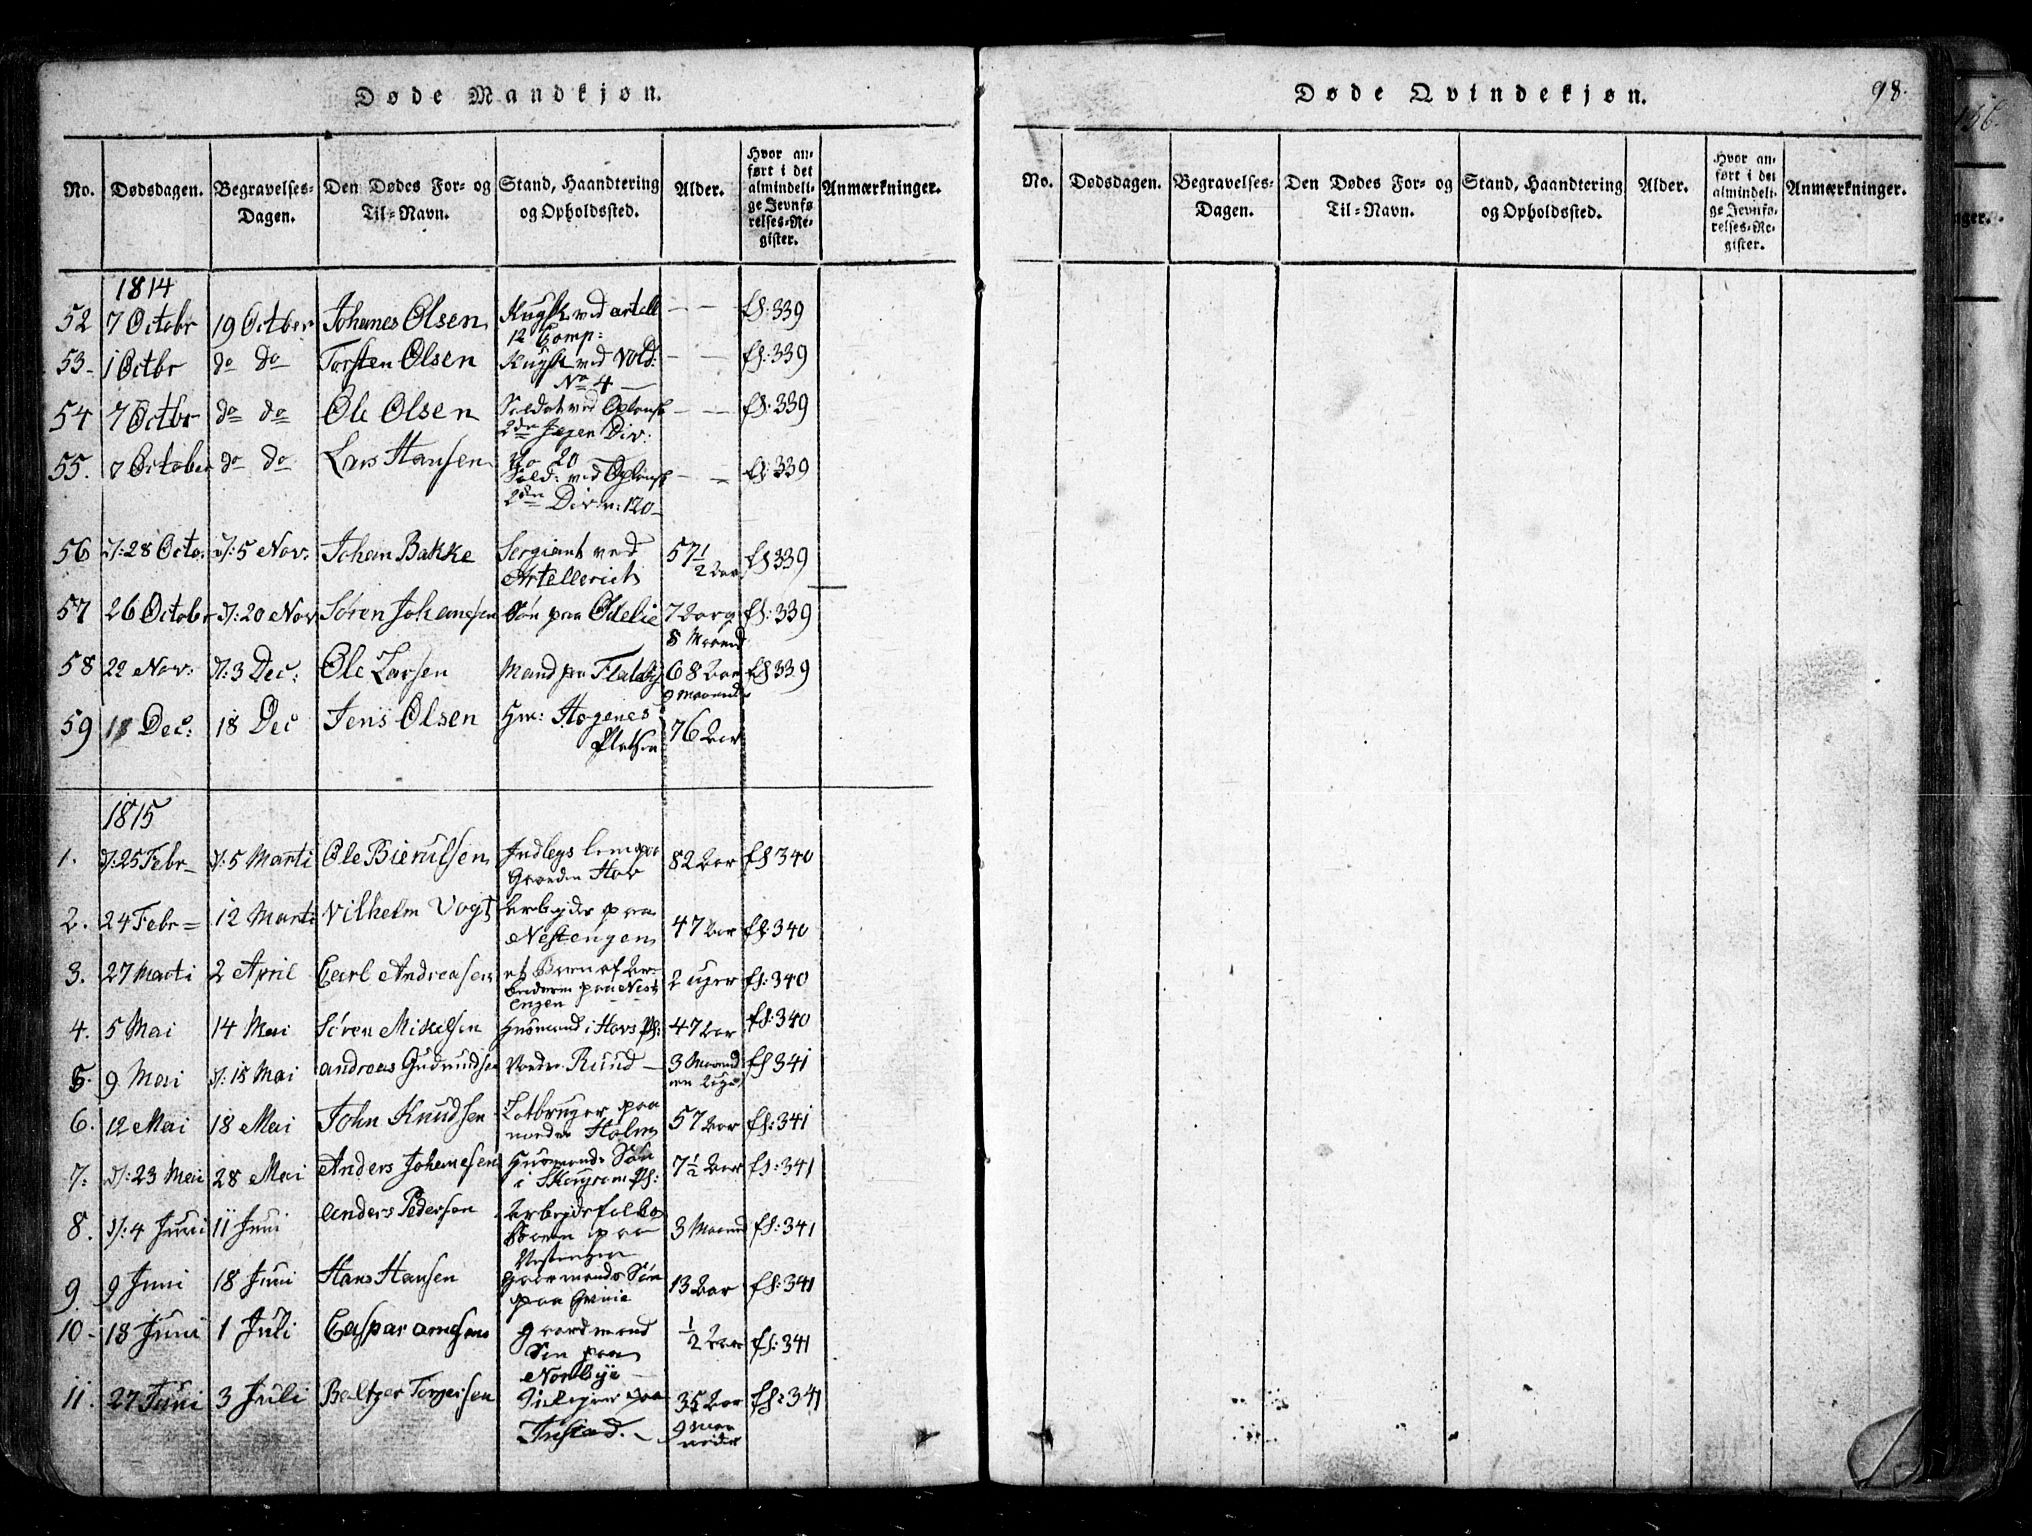 Døde Mandkjøn.
No. Dødsdagen. Begravelses-Dagen. Den Dødes For- og Til-Navn. Stand, Haandtering og Opholdssted. Alder. Hvor anført i det almindelige Jevnførelses-Register. Anmærkninger.
1814
52 7 Octobr 19 Octber Johanes Olsen Kusk ved artell 12 Comp: — — fol: 339
53- 1 Octbr do do Torsten Olsen Kusk ved Vold: No 4 — — fol: 339
54 7 Octbr do do Ole Olsen Soldat ved Oplansk 2den Jegen Div: No 20 — — fol: 339
55. 7 October do do Lars Hansen Sold: ved Oplansk 2den Div: 120 — — fol: 339
56 D: 28 Octo. D: 5 Nov: Johan Bakke Sergiant ved Artelleriet 57 1/2 Aar fol 339
57 26 Octobr D: 20 Nov Søren Johansen Søn paa Odelie 7 Aar og 8 Maaned fol: 339
58 22 Nov: D: 3 Dec: Ole Larsen Mand paa Fladby 68 Aar 9 Maaned fol 339
59 11 Dec: 18 Dec Jens Olsen Hm: Pladsen 76 Aar
1815
1. D: 25 Febr D: 5 Marti Ole Bierulsen Indlegs lem paa Gaarden Hov 82 Aar fol 340
2. 24 Febr 12 Marti Vilhelm Vogt Arbejder paa Nestengen 47 Aar fol: 340
3. 27 Marti 2 April Carl Andreasen et Barn af Arbederen paa Nestengen 2 uger fol: 340
4. 5 Mai 14 Mai Søren Mikelsen Husmand i Hovs Pl: 47 Aar fol: 340
5. 9 Mai D: 15 Mai andreas Gudmundsen Nordre Ruud 3 Maaned en Uge fol 341
6. 12 Mai 18 Mai John Knudsen paa nordre Holm 57 Aar fol: 341
7: D: 23 Mai 28 Mai Anders Johanesen Husmands Søn i Pl: 7 1/2 Aar fol: 341
8. D: 4 Juni 11 Juni Anders Pedersen Arbejdsfolks Barn paa 3 Maaned fol: 341
9. 9 Juni 18 Juni Hans Hansen Gaarmands Søn paa 13 Aar fol: 341
10- 18 Juni 1 Juli Caspar arnesen gaardmand Søn paa Nordbye 1/2 Aar fol: 341
11. 27 Juni 3 Juli Baltzer Torgersen paa Tristad. 35 Aar 9 Maaneder fol: 341
Døde Qvindekjøn.
98.
No. Dødsdagen. Begravelses-Dagen. Den Dødes For- og Til-Navn. Stand, Haandtering og Opholdssted. Alder. Hvor anført i det almindelige Jevnførelses-Register. Anmærkninger.
136.